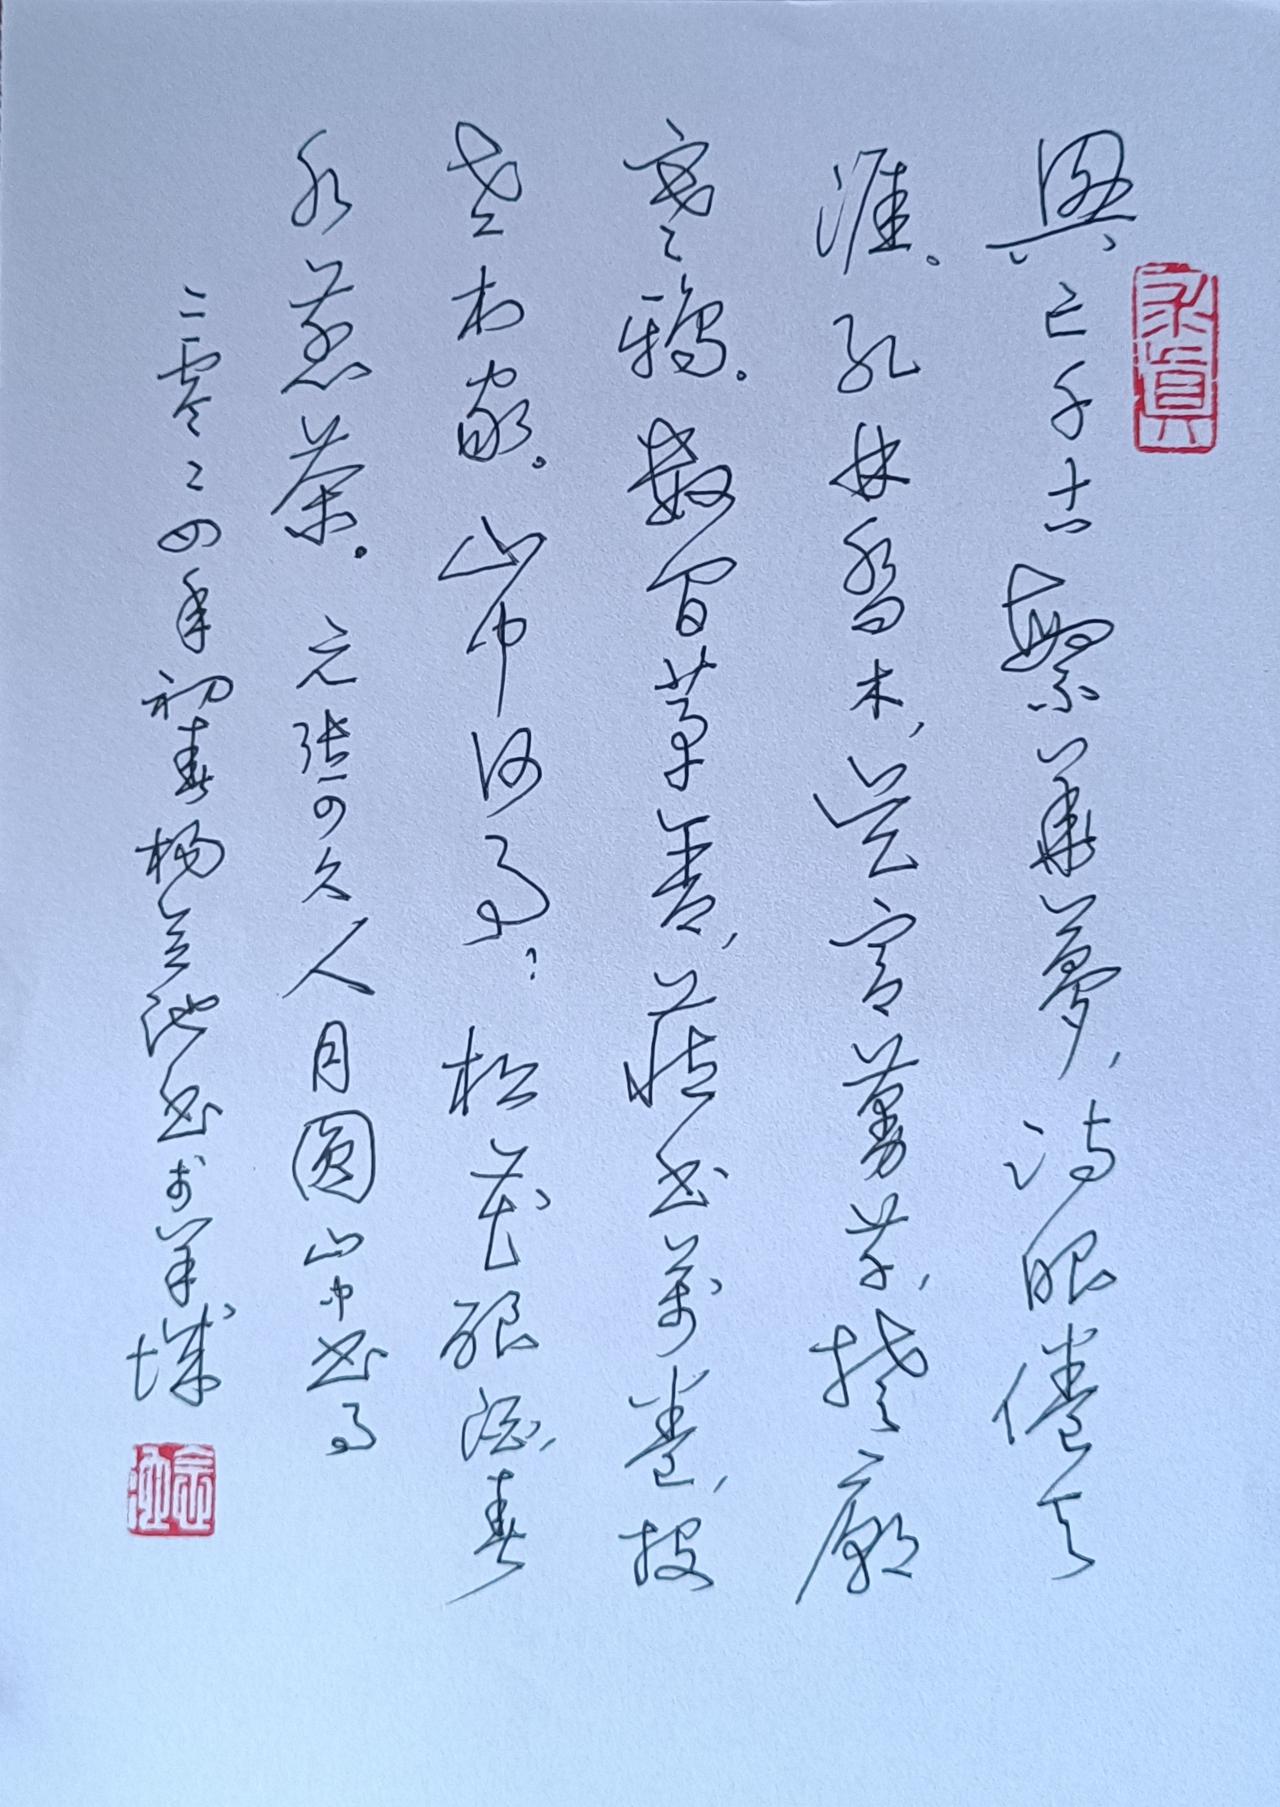 興亡千古繁華夢,詩眼倦天
涯。孔林喬木,吴宮蔓草,楚廟
寒鴉。數間茅舍,藏書萬卷,投
老村家。山中何事?松花釀酒,春
水煎茶。元張可久人月圓山中書事
二零二四年初春楊宗池書於羊城
求真